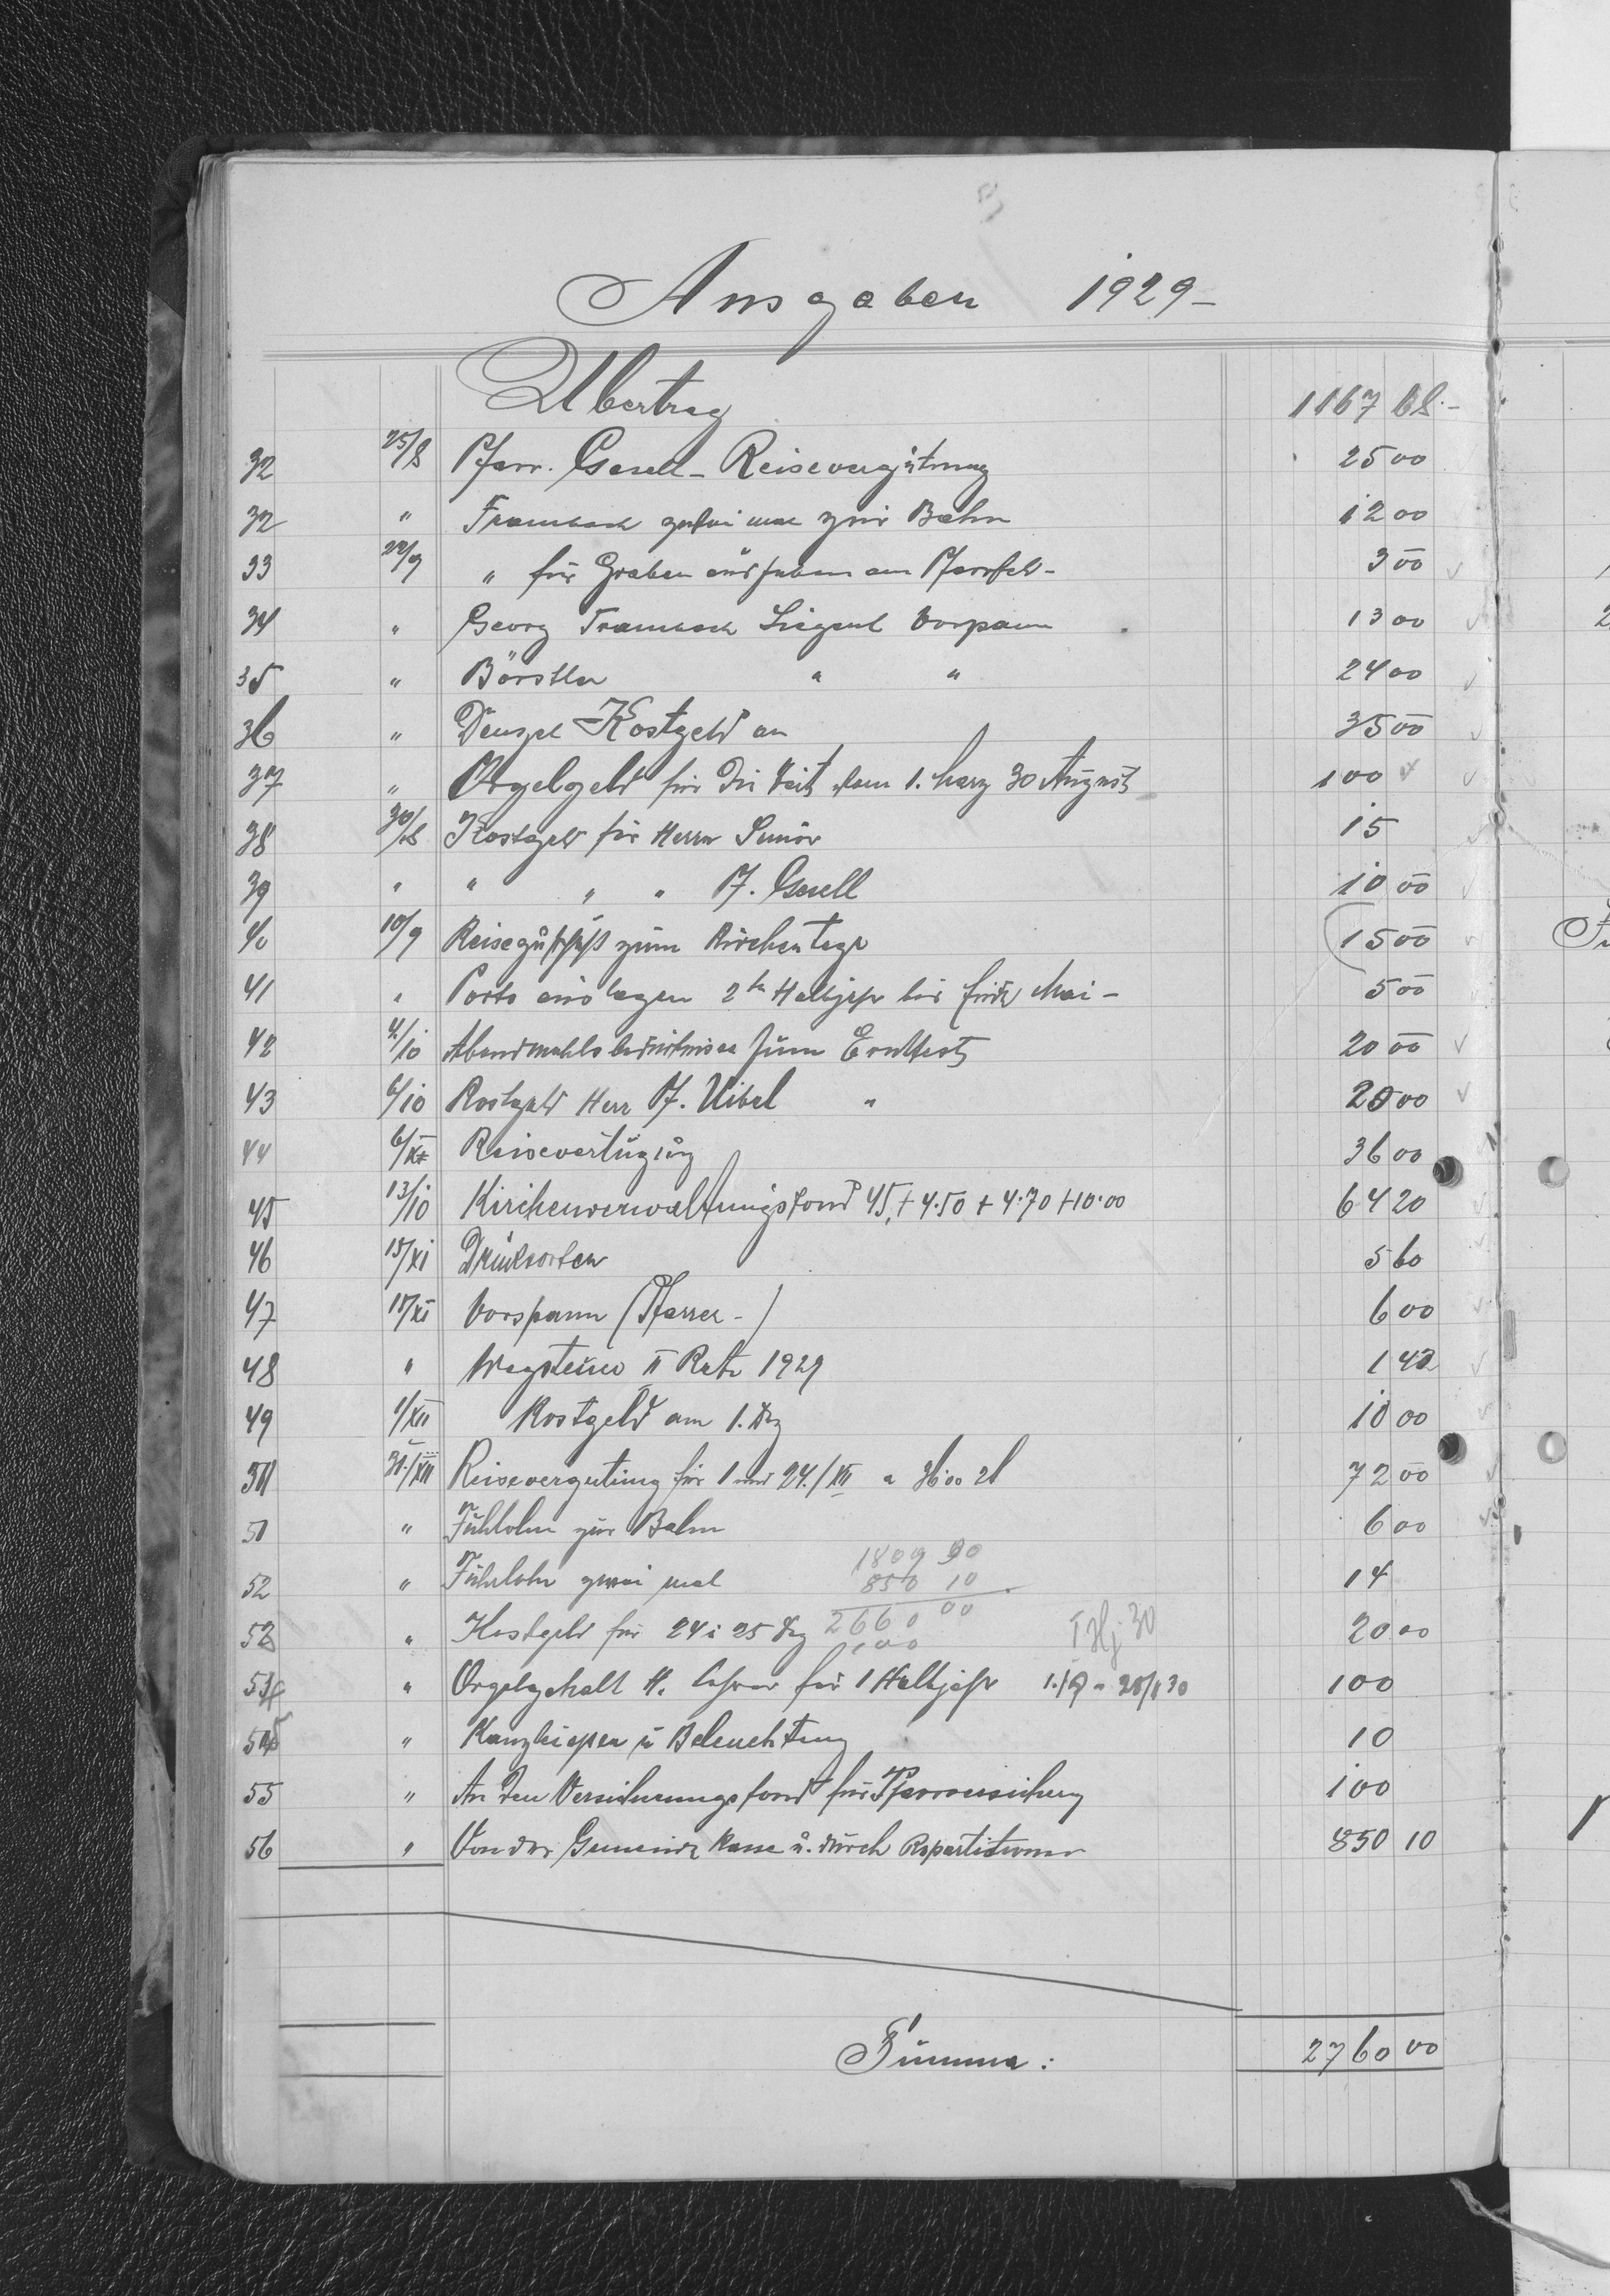 Ausgaben 1929
Übertrag 1167 68.-
32 25/8 Pfarr. Gesell - Reisevergütung 25 00
32 " zwei mal zur Bahn 12 00
33 22/9 " für Graben am Pfarrfeld - 3 00
34 " Georg Vorspann 13 00
35 " Börstler " " 24 00
36 " Kostgeld an 35 00
37 " Orgelgeld für die Zeit vom 1. März 30 August 100
38 30/8 Kostgeld für Herrn Senior 15
39 " " " " Pf. Gesell 10 00
40 10/9 Reisezuschuß zum Kirchentage 15 00
41 " Porto auslagen 2te Halbjahr bis Ende Mai - 5 00
42 4/10 Abendmahlsbedürfnisse zum Erntfest 20 00
43 6/10 Kostgeld Herr Pf. Uibel " 20 00
44 Reisevertügung 36 00
45 13/10 Kirchenverwaltungsfond 45,+ 4.50 + 4.70 + 10.00 64 20
46 15/XI Drucksorten 5 60
47 15/XI Vorspann (Pfarrer - ) 6 00
48 " Wegsteuer II Rate 1929 1 42
49 1/XII Kostgeld am 1. Dez 10 00
31./XII Reisevergütung für 1 und 24./XII a 36.00 zl 72 00
51 " Fuhrlohn zur Bahn 6 00
1809 90
52 " Fuhrlohn zwei mal 850 10 14
" Kostgeld für 24 i 25 Dez 2660 00 I Hj 30 20 00
" Orgelgehalt H. Lehrer für 1 Halbjahr 100
" Kanzleispesen u Beleuchtung 10
55 " An den Versicherungsfond für 100
56 " Von der Gemeinde Kasse u. durch Repartitionen 850 10
Summa: 2760 00